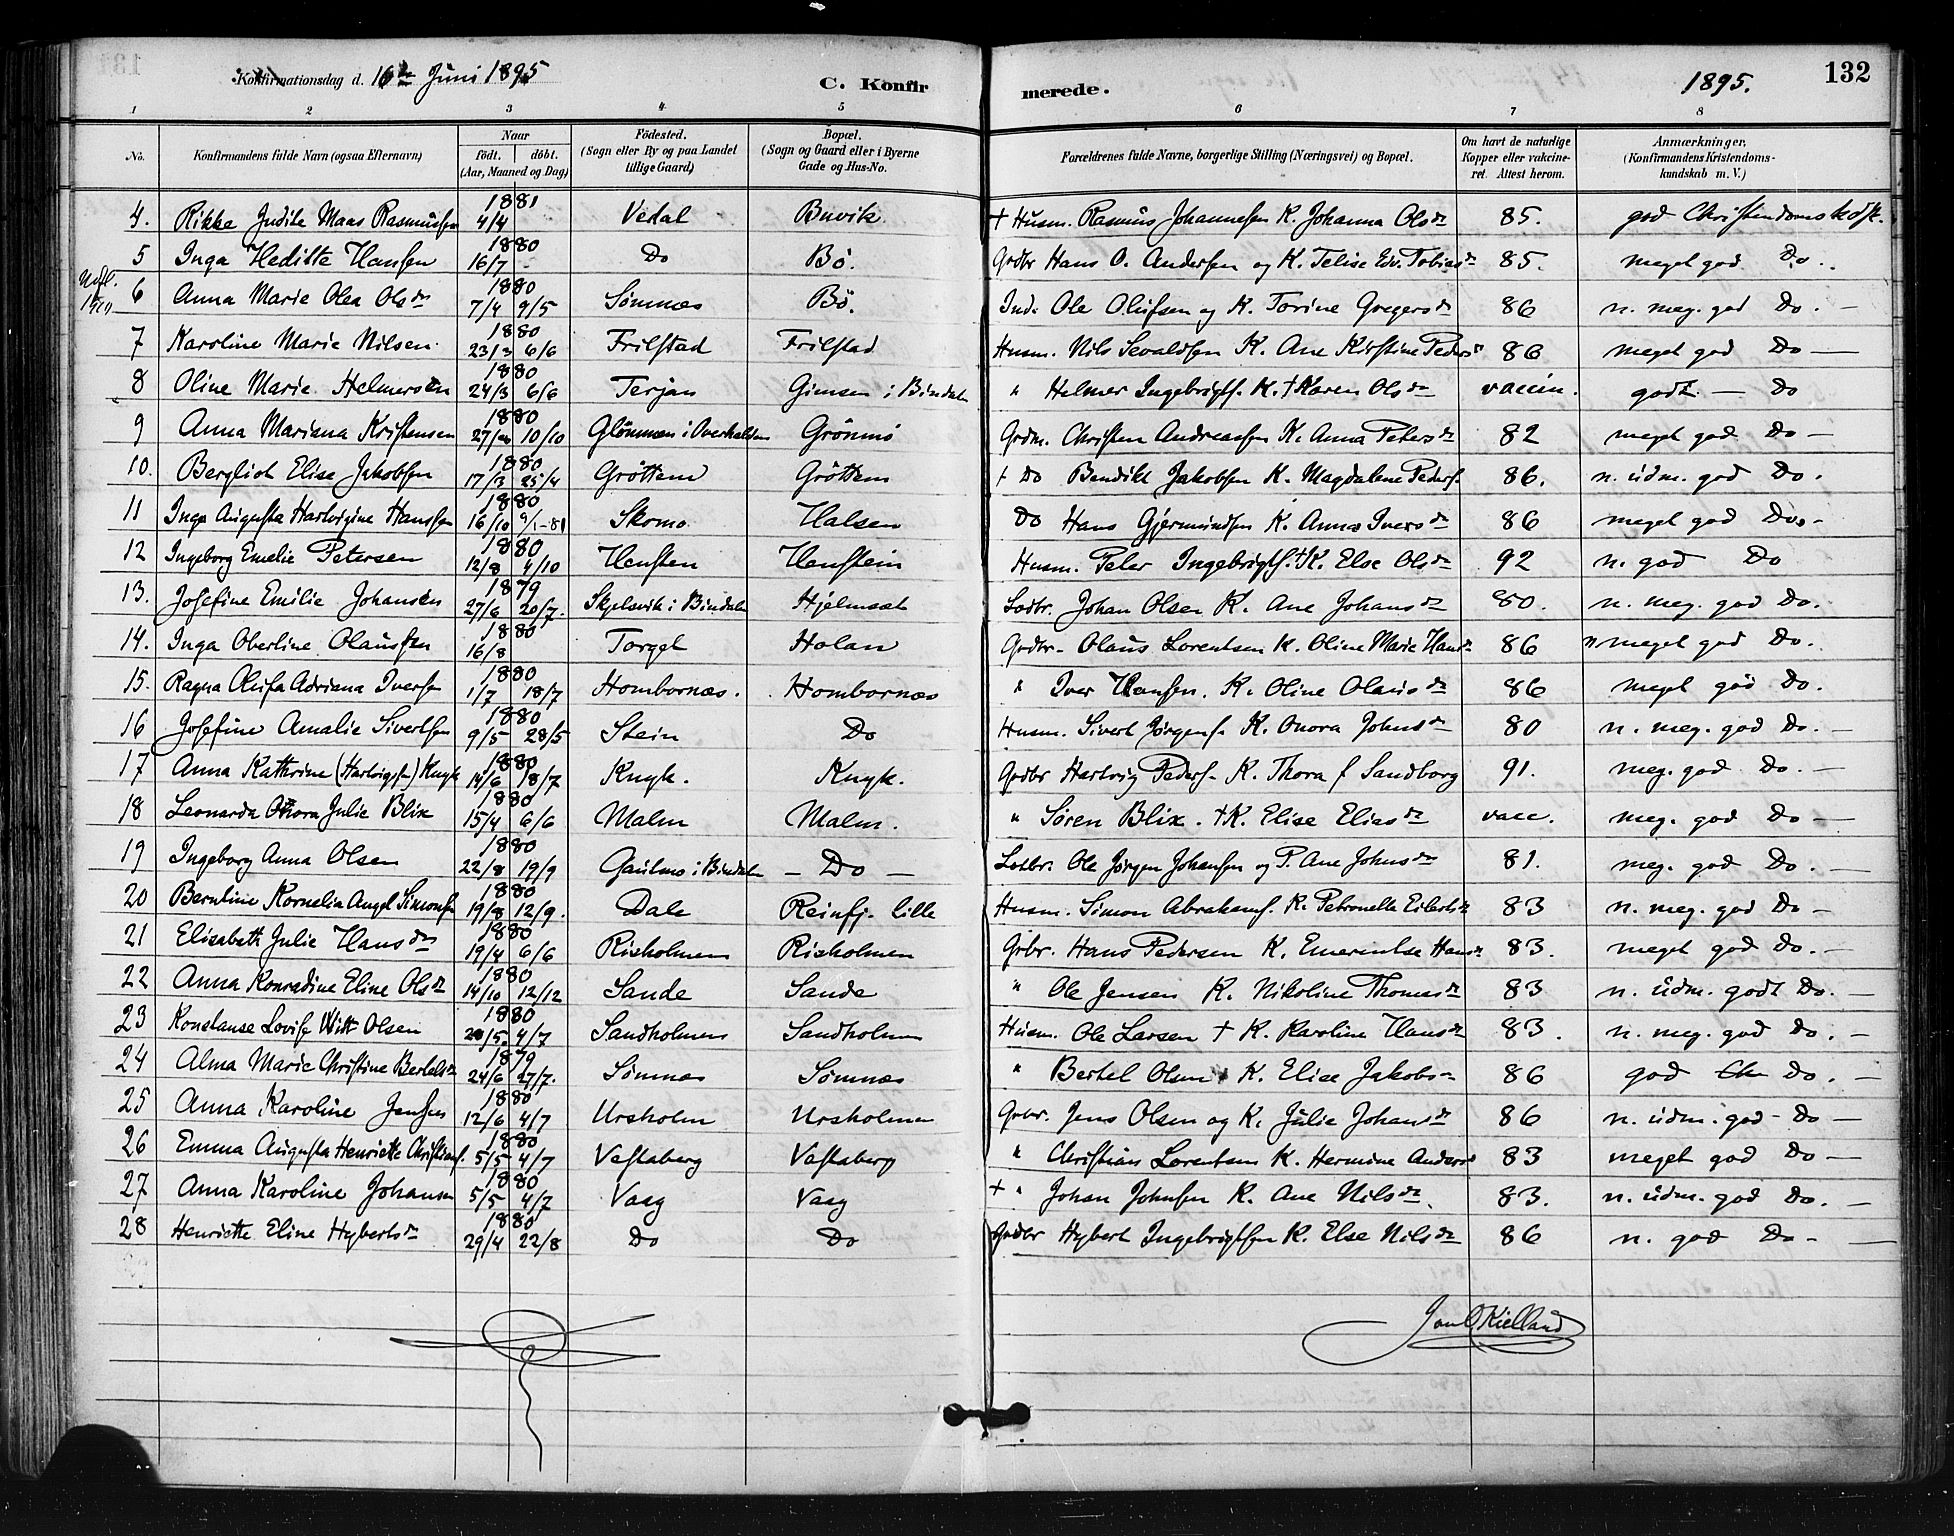 Konfirmationsdag d. 16de Juni 1895 C. Konfir merede. 1895. 132
1 2 3 4 5 6 7 8
No. Konfirmandens fulde Navn (ogsaa Efternavn) Naar födt. döbt. (Aar, Maaned og Dag) Födested. (Sogn eller By og paa Landet tillige Gaard) Bopæl. (Sogn og Gaard eller i Byerne Gade og Hus-No. Forældrenes fulde Navne, borgerlige Stilling (Næringsvei) og Bopæl. Om havt de naturlige Kopper eller vakcineret. Attest herom. Anmærkninger, (Konfirmandens Kristendomskundskab m. V.)
4. Rikke Judite Maas Rasmussen 1881 4/4 Vedal Buvik + Husm. Rasmus Johannesen K. Johanna Olsdr 85. god Christendomskdsk.
5 Inga Heditte Hansen 1880 16/7 - Do Bö. Grdbr Hans O. Andersen og K. Telise Edv. Tobiasdr 85. meget god Do.
6 Anna Marie Olea Olsdr 1880 7/4 9/5 Sömnæs Bö. Ind. Ole Olufsen og K. Torine Gregersdr 86 n. meg. god Do. -
7 Karoline Marie Nilsen. 1880 23/3 6/6 Frilstad Frilstad Husm. Nils Sevaldsen K. Ane Kirstine Pedersdr 86 meget god Do -
8 Oline Marie Helmersen 1880 24/3 6/6 Terjan Gimsen i Bindalen " Helmer Ingebrigts. K. + Karen Olsdr vaccin. godt - Do
9 Anna Mariana Kristensen 1880 10/10 Glömmen i Overhalden Grönmo Grdm. Christen Andreassen K. Anna Petersdr 82 meget god Do -
10. Bergliot Elise Jakobsen 1880 17/3 25/4 Gröttem Gröttem + Do Bendikt Jakobsen K. Magdalene Peders. 86. n. udm. god Do.
11 Inga Augusta Hartvigine Hanssen 1880 16/10 9/1-81 Skomo Halsen Do Hans Gjermundsen K. Anna Iversdr 86 meget god Do. -
12 Ingeborg Emelie Petersen 1880 12/8 4/10 Hensten Henstein Husm. Peter Ingebrigts. + K. Else Olsdr 92 n. god Do
13. Josefine Emilie Johansen 1879 27/6 20/7. Skjelsvik i Bindalen Hjelmset Lodbr. Johan Olsen K. Ane Johansdr 80. n. meg. god Do.
14. Inga Oberline Olaussen 1880 16/8 Torget Holan Grdbr. Olaus Lorentsen K. Oline Marie Hansdr 86 n meget god Do.
15. Ragna Olufa Adriana Ivers. 1880 1/7 18/7 Hombornæs. Hombornæs " Iver Hansen. K. Oline Olausdr 86 meget god Do.
16 Josefine Amalie Sivertsen 1880 9/5 28/5 Stein Do Husm. Sivert Jørgens. K. Onora Johnsdr 80 n. meg. god Do. -
17 Anna Kathrine (Hartvigsen) Knyk 1880 14/6 18/7 Knyk. Knyk. Grdbr Hartvig Peders. K. Thora f Sandborg 91. meg. god Do. -
18 Leonarda Onora Julie Blix 1880 15/4 6/6 Malm Malm. " Søren Blix. + K. Elise Eliasdr vacc. meg. god Do -
19 Ingeborg Anna Olsen 1880 22/8 19/9 Gaulmo i Bindalen - Do - Lodbr. Ole Jørgen Johansen og P. Ane Johnsdr 81. meg. god Do. -
20 Berntine Kornelia Angel Simons. 1880 19/8 12/9. Dale Reinfj. lille Husm. Simon Abrahams. K. Petronelle Eilertsdr 83 n. meg. god Do -
21 Elisabeth Julie Hansdr 1880 19/4 6/6 Risholmen Risholmen Grbr. Hans Pedersen K. Emerentse Hansdr 83. meget god Do. -
22 Anna Konradine Eline Olsdr 1880 14/10 12/12 Sande Sande " Ole Jensen K. Nikoline Thomasdr 83 n. udm. godt Do. -
23 Konstanse Lovise Witt Olsen 1880 20/5. 4/7 Sandholmen Sandholmen Husm. Ole Larsen + K. Karoline Hansdr 83. n. meg. god Do. -
24 Alma Marie Christine Bertelsdr 1879 24/6 27/7. Sömnæs Sömnæs " Bertel Olsen K. Elise Jakobsdr 86 god Do. -
25 Anna Karoline Jensen 1880 12/6 4/7 Ursholm Ursholmen Grbr. Jens Olsen og K. Julie Johansdr 86 n. udm. god - Do -
26 Emma Augusta Henriette Christians. 1880 5/5 4/7 Vastaberg Vastaberg " Christian Lorentsen K. Hermine Andersdr 83 meget god Do -
27 Anna Karoline Johansen 1880 5/5 4/7 Vaag Vaag + " Johan Johnsen K. Ane Nilsdr. 83. n. udm. god Do. -
28 Henriette Eline Hybertsdr 1880 29/4 22/8 Do Do Grdbr Hybert Ingebrigtsen K. Else Nilsdr 86 n. god Do -
Kielland